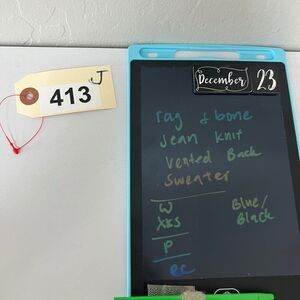 J
413
December 23
rag & bone
Jean Knit
Vented Back
Sweater
W
XXS
Blue/
Black
P
ec